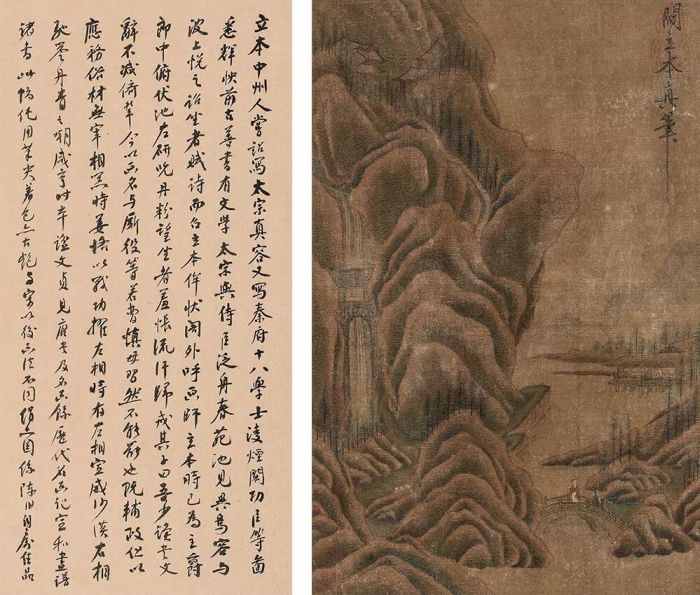 立本中州人嘗詔寫太宗真容又寫秦府十八學士凌煙閣功臣等圖
悉輝映前古善書有文學太宗與侍臣泛舟春苑池見異鳥容與
波上悅之詔坐者賦詩而召立本侔狀閣外呼畫師立本時已為主爵
郎中俯伏池左研吮丹粉望坐者羞悵流汗歸戒其子曰吾少讀書文
辭不減儕輩今以畫名與廝役等若曹慎毋習然不能罷也既輔政但以
應務俗材無宰相器時姜恪以戰功擢左相時有左相宣威沙漠右相
馳譽丹青之嘲咸亨時卒諡文貞見唐書及名畫錄歷代名畫記宣和畫譜
諸書此幀純用著色亦古艷与宋以後畫法不同絹亦陳旧自屬佳品
閻立本真筆